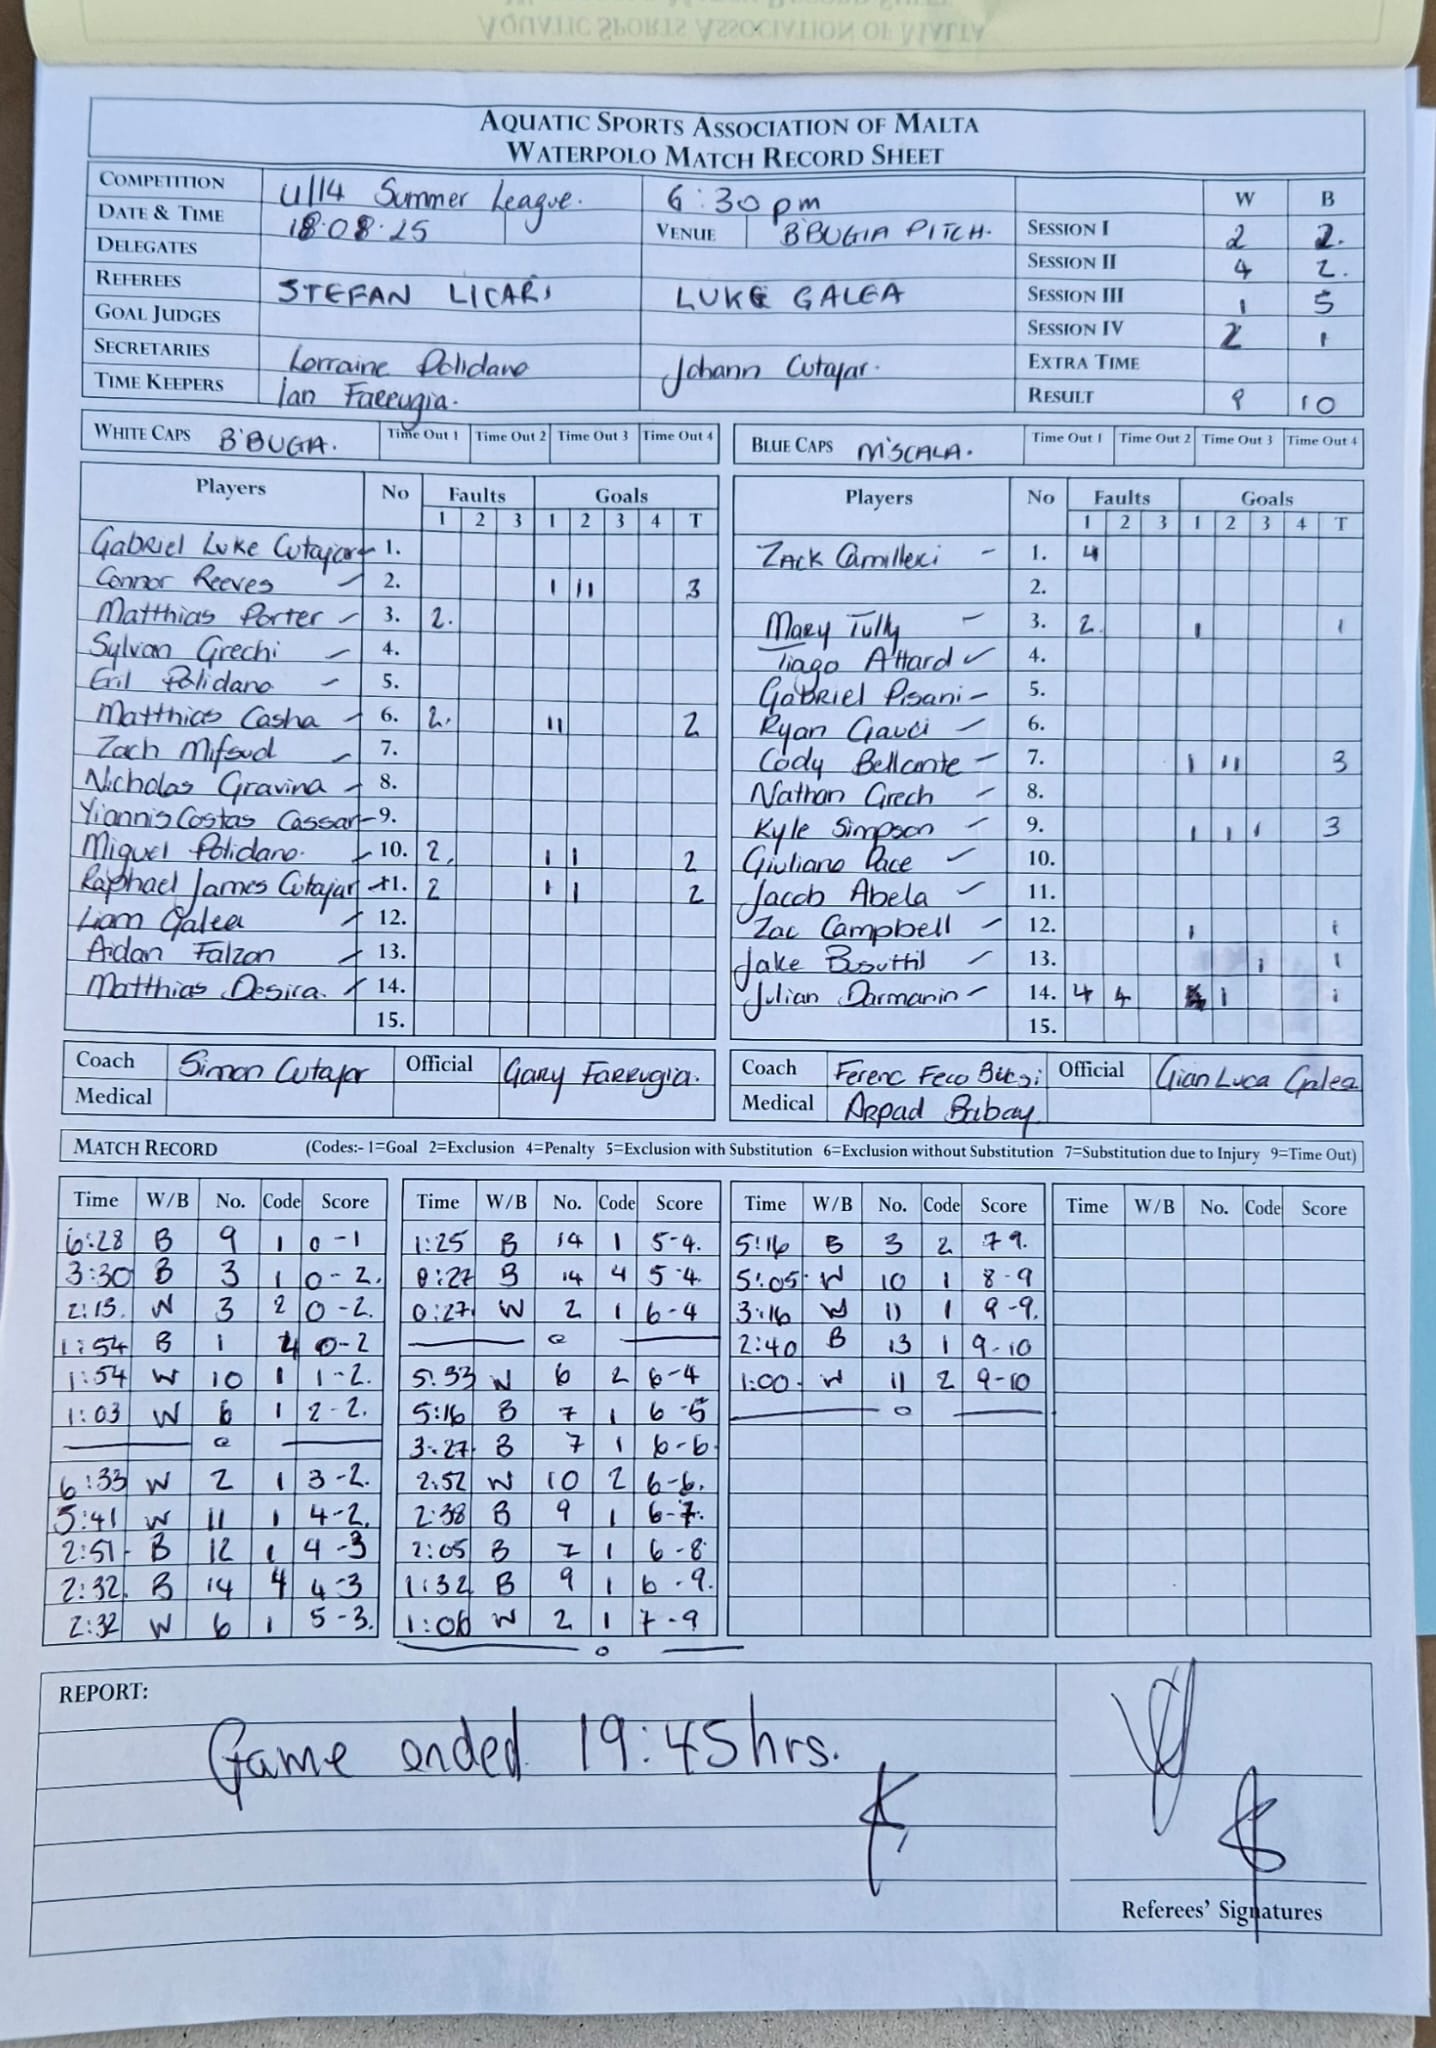 AQUATIC SPORTS ASSOCIATION OF MALTA
AQUATIC SPORTS ASSOCIATION OF MALTA
WATERPOLO MATCH RECORD SHEET
COMPETITION U/14 Summer League. 6:30pm W B
DATE & TIME 18.08.25 VENUE B'BUGIA PITCH. SESSION I 2 2.
DELEGATES SESSION II 4 2.
REFEREES STEFAN LICARI LUKE GALEA SESSION III 1 5
GOAL JUDGES SESSION IV 2 1
SECRETARIES Lorraine Polidano Johann Cutajar. EXTRA TIME
TIME KEEPERS Ian Farrugia. RESULT 9 10
WHITE CAPS B'BUGIA. Time Out 1 Time Out 2 Time Out 3 Time Out 4
Players No Faults Goals
1 2 3 1 2 3 4 T
Gabriel Luke Cutajar 1.
Connor Reeves 2. I II 3
Matthias Porter 3. 2.
Sylvan Grechi 4.
Eril Polidano 5.
Matthias Casha 6. 2. II 2
Zach Mifsud 7.
Nicholas Gravina 8.
Yiannis Costas Cassar 9.
Miguel Polidano. 10. 2. I I 2
Raphael James Cutajar 11. 2 I I 2
Liam Galea 12.
Aidan Falzon 13.
Matthias Desira. 14.
15.
Coach Simon Cutajar Official Gary Farrugia.
Medical
BLUE CAPS M'SCALA. Time Out 1 Time Out 2 Time Out 3 Time Out 4
Players No Faults Goals
1 2 3 1 2 3 4 T
Zack Camilleri 1. 4
2.
Mary Tully 3. 2. I 1
Tiago Attard 4.
Gabriel Pisani 5.
Ryan Gauci 6.
Cody Bellante 7. I II 3
Nathan Grech 8.
Kyle Simpson 9. I I I 3
Giuliano Pace 10.
Jacob Abela 11.
Zac Campbell 12. I 1
Jake Busuttil 13. I 1
Julian Darmanin 14. 4 4 I 1
15.
Coach Ferenc Feco Official Gian Luca Galea
Medical Arpad Babay
MATCH RECORD (Codes:- 1=Goal 2=Exclusion 4=Penalty 5=Exclusion with Substitution 6=Exclusion without Substitution 7=Substitution due to Injury 9=Time Out)
Time W/B No. Code Score
6:28 B 9 1 0-1
3:30 B 3 1 0-2.
2:15. W 3 2 0-2.
1:54 B 1 4 0-2
1:54 W 10 1 1-2.
1:03 W 6 1 2-2.
6:33 W 2 1 3-2.
5:41 W 11 1 4-2.
2:51 B 12 1 4-3
2:32. B 14 4 4-3
2:32 W 6 1 5-3.
Time W/B No. Code Score
1:25 B 14 1 5-4.
0:27 B 14 4 5-4.
0:27 W 2 1 6-4
5:33 W 6 2 6-4
5:16 B 7 1 6-5
3:27 B 7 1 6-6.
2:52 W 10 2 6-6.
2:38 B 9 1 6-7.
2:05 B 7 1 6-8
1:32 B 9 1 6-9.
1:06 W 2 1 7-9
Time W/B No. Code Score
5:16 B 3 2 7 9.
5:05 W 10 1 8-9
3:16 W 11 1 9-9.
2:40 B 13 1 9-10
1:00 W 11 2 9-10
Time W/B No. Code Score
REPORT:
Game ended 19:45hrs.
Referees' Signatures